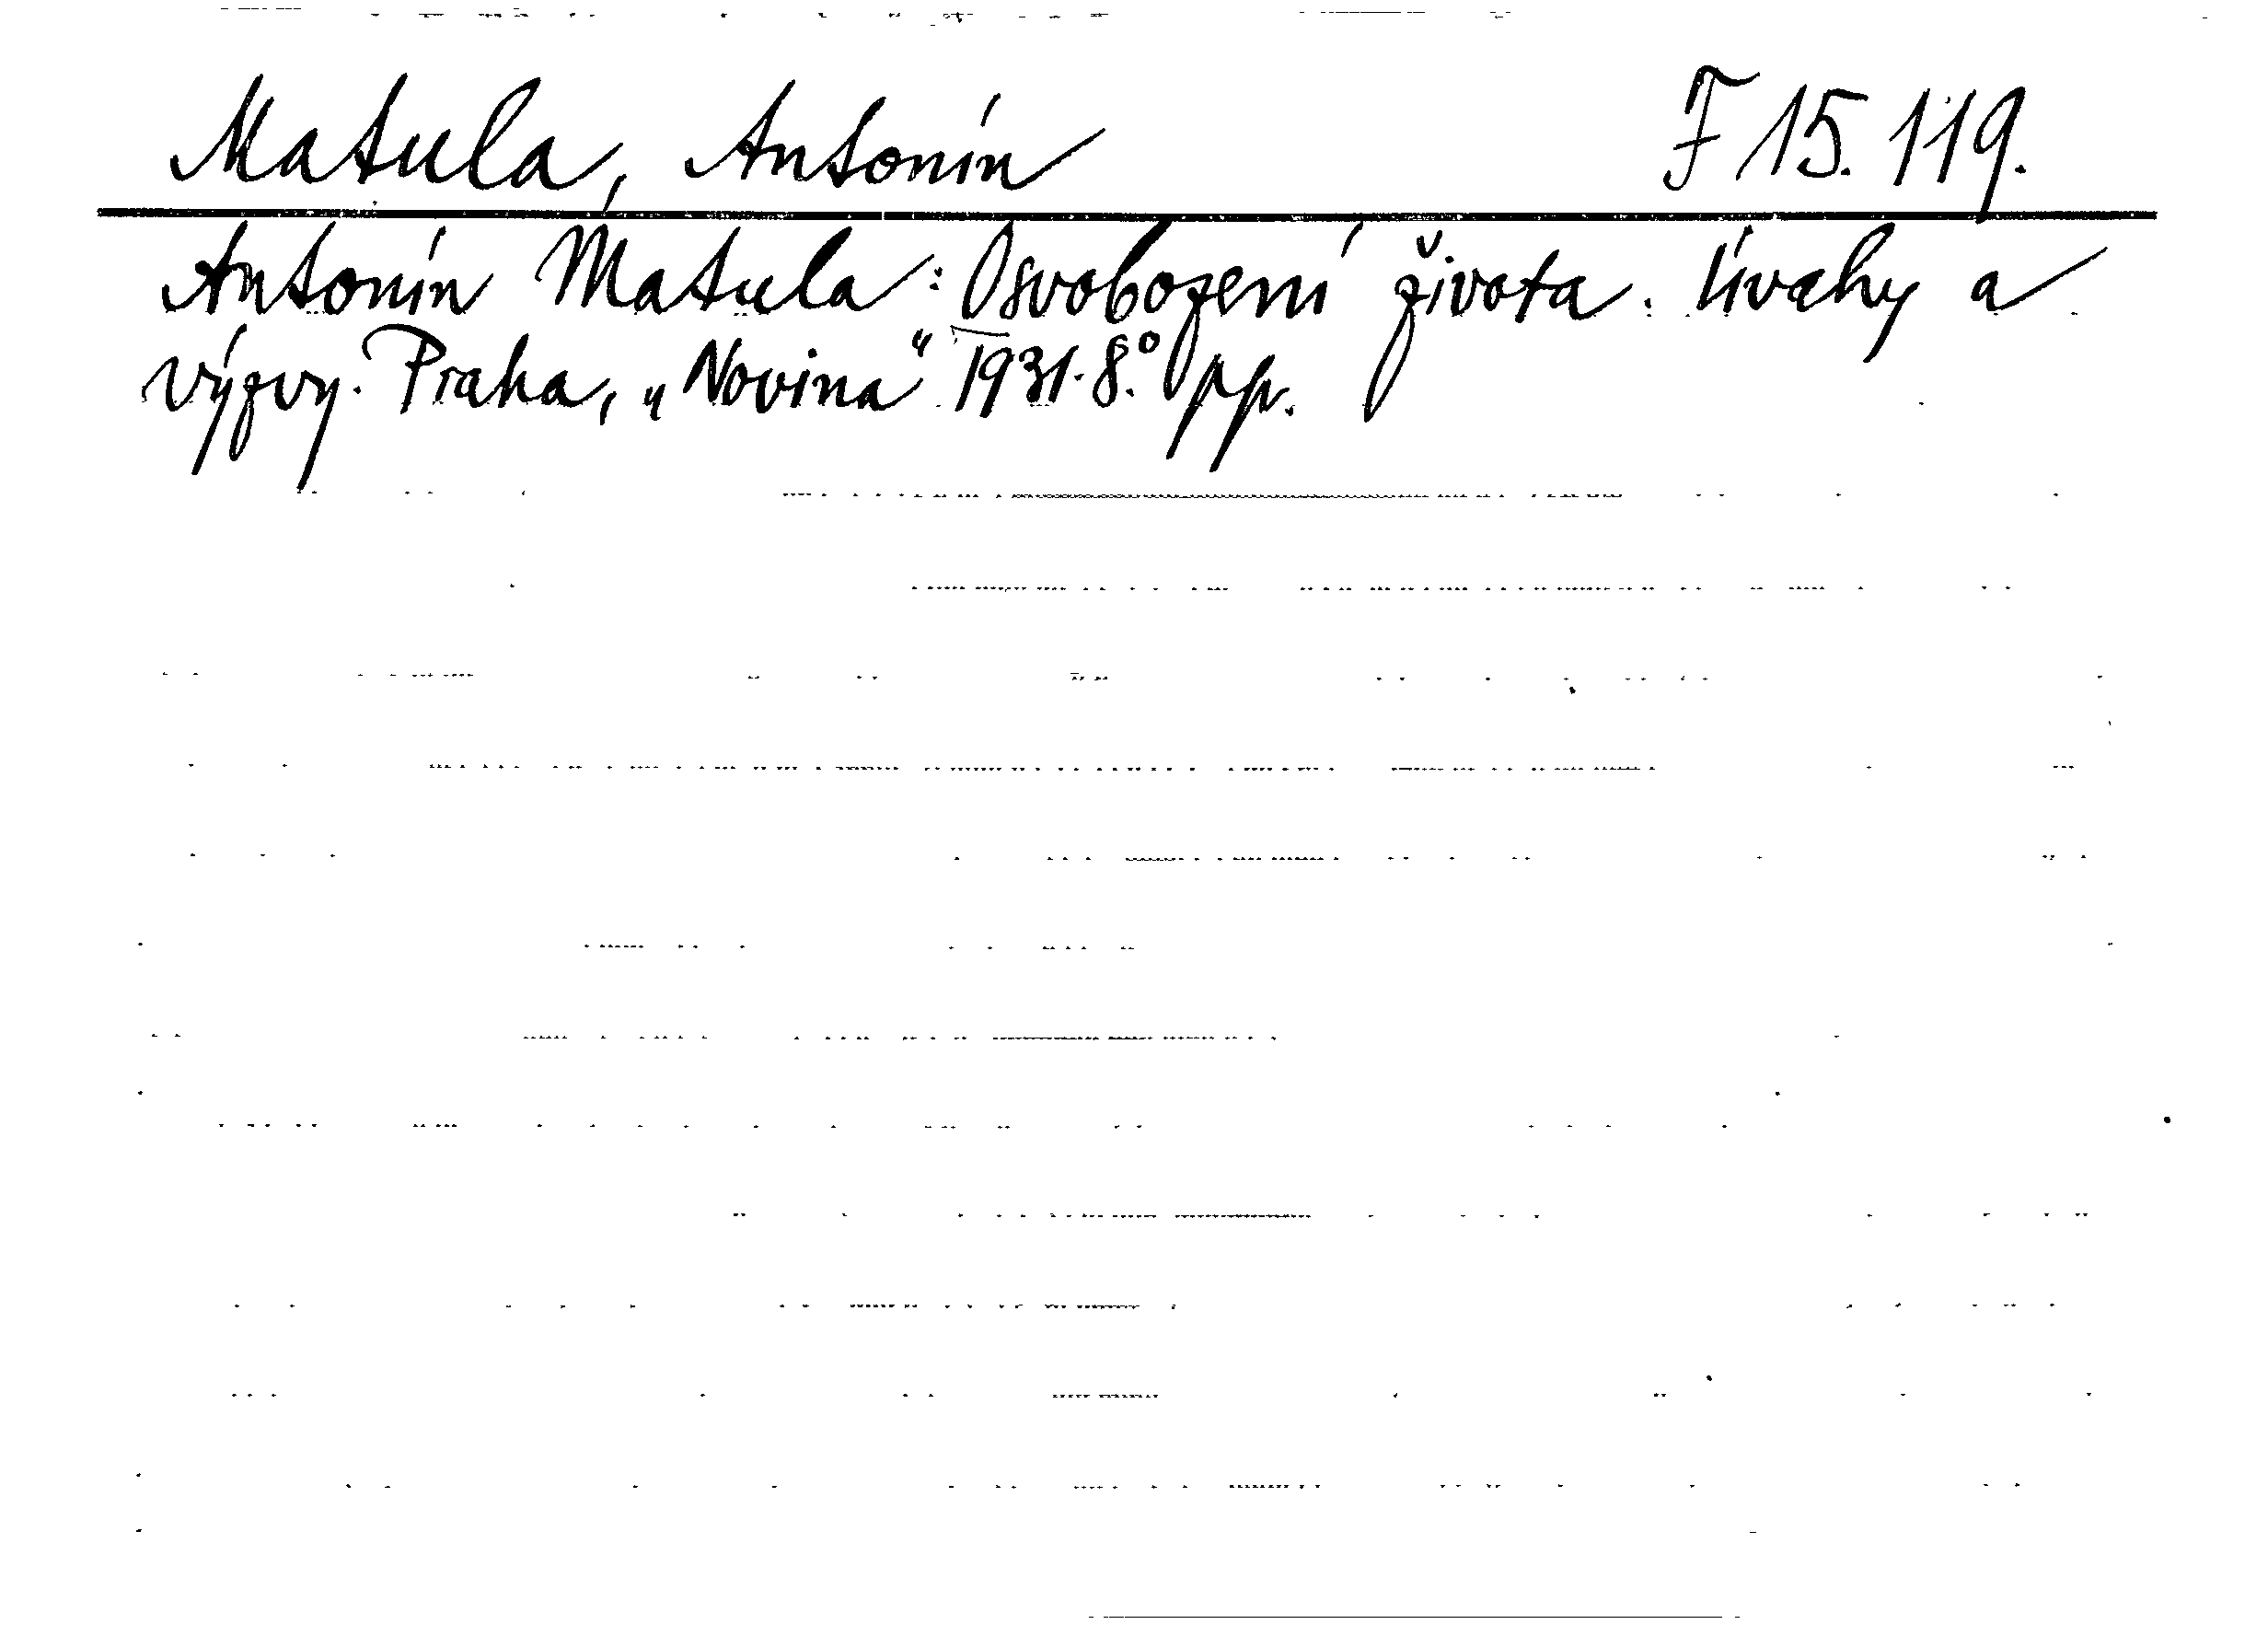 Matula, Antonín F 15.119.
Antonín Matula: Osvobození života. Úvahy a
výzvy. Praha, „Novina“ 1931. 8.° pp.